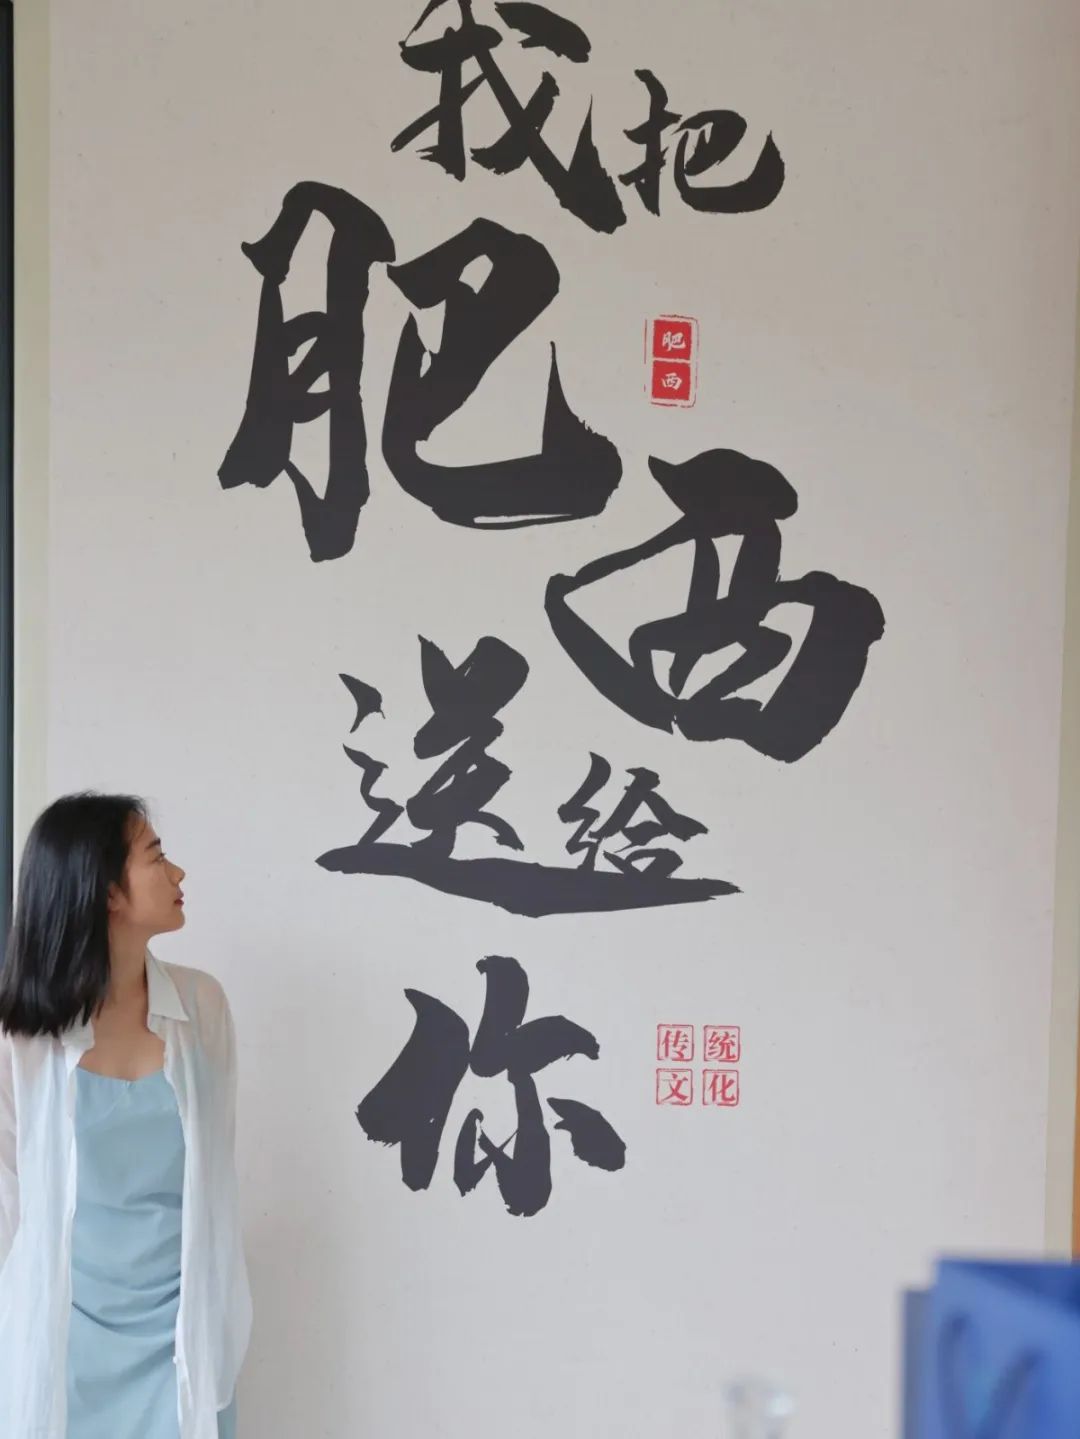 我把
肥西
肥西
送给
你
传统
文化